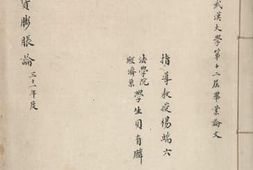 武漢大學第十二屆畢業論文
指導教授楊端六
法學院
經濟系
學生貝有麟
貨膨脹論
三十一年度